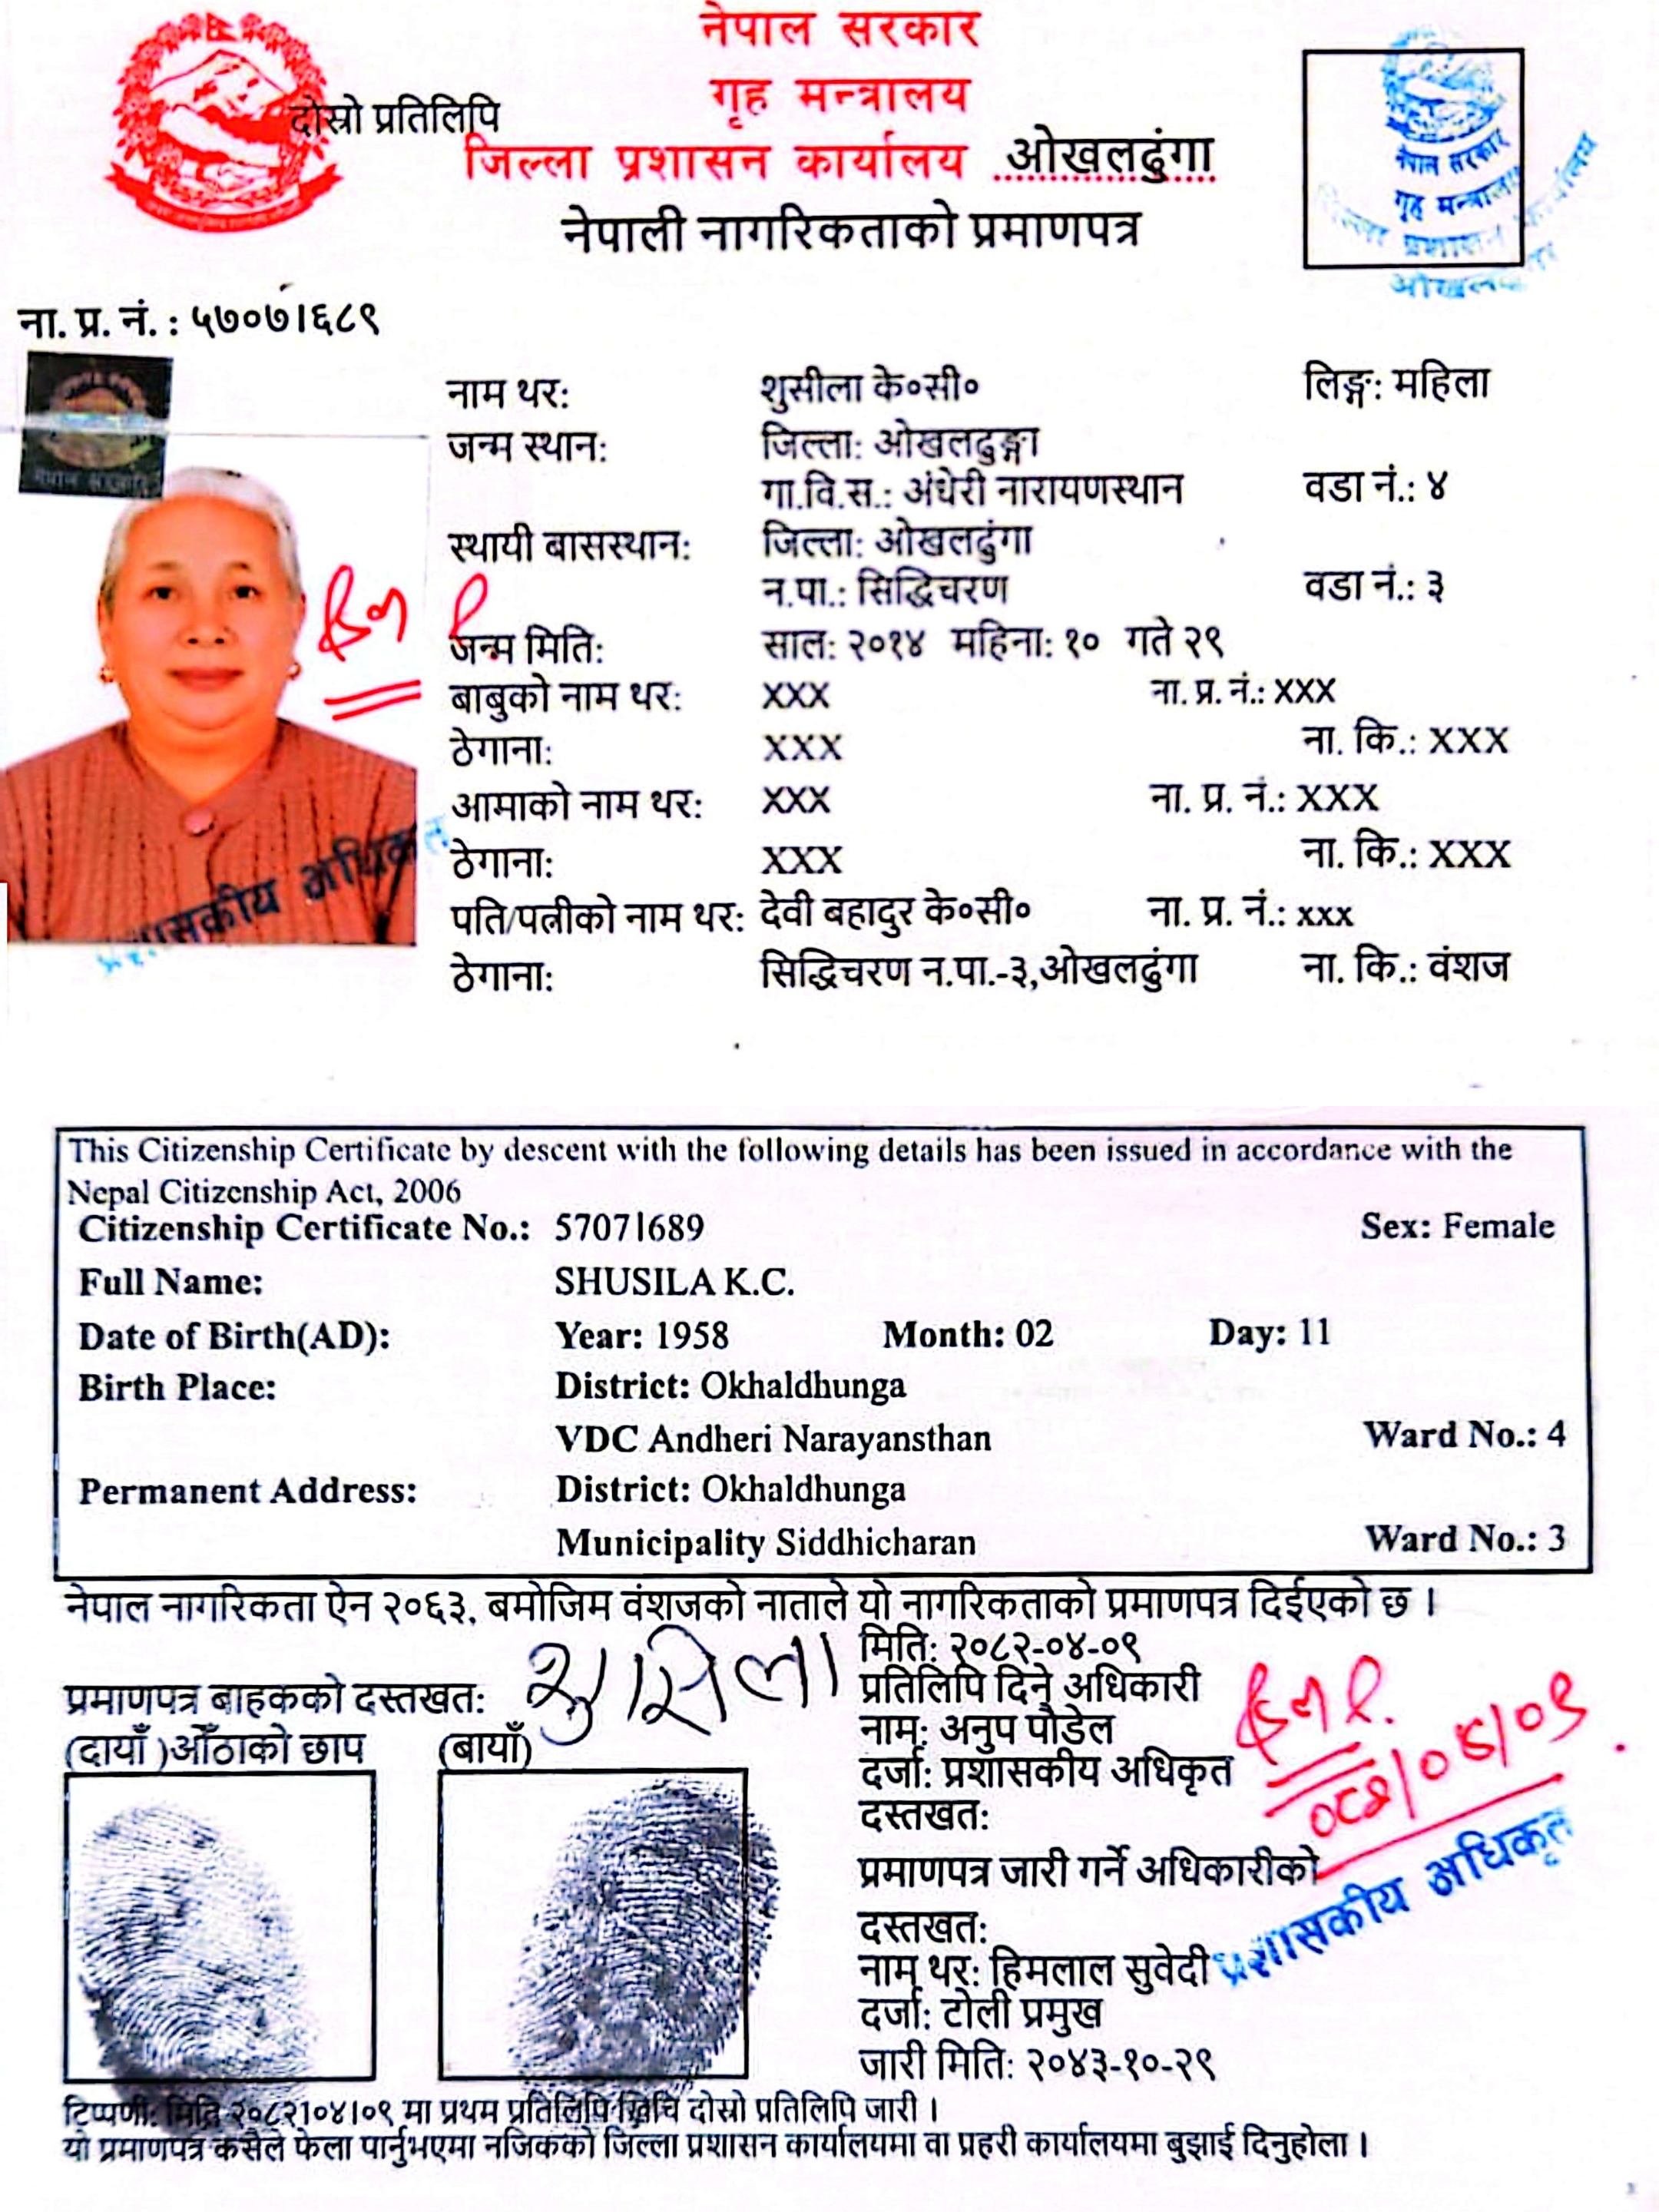 नेपाल सरकार
गृह मन्त्रालय
दोस्रो प्रतिलिपि
जिल्ला प्रशासन कार्यालय ओखलढुंगा
नेपाली नागरिकताको प्रमाणपत्र
नेपाल सरकार
गृह मन्त्रालय
जिल्ला प्रशासन कार्यालय
ना. प्र. नं. : ५७०७।६८९
नाम थर: शुसीला के०सी० लिङ्ग: महिला
जन्म स्थान: जिल्ला: ओखलढुङ्गा
गा.वि.स.: अंधेरी नारायणस्थान वडा नं.: ४
स्थायी बासस्थान: जिल्ला: ओखलढुंगा
न.पा.: सिद्धिचरण वडा नं.: ३
जन्म मिति: साल: २०१४ महिना: १० गते २९
बाबुको नाम थर: XXX ना. प्र. नं.: XXX
ठेगाना: XXX ना. कि.: XXX
आमाको नाम थर: XXX ना. प्र. नं.: XXX
ठेगाना: XXX ना. कि.: XXX
पति/पत्नीको नाम थर: देवी बहादुर के०सी० ना. प्र. नं.: xxx
ठेगाना: सिद्धिचरण न.पा.-३,ओखलढुंगा ना. कि.: वंशज
प्रशासकीय अधिकृत
This Citizenship Certificate by descent with the following details has been issued in accordance with the
Nepal Citizenship Act, 2006
Citizenship Certificate No.: 5707|689 Sex: Female
Full Name: SHUSILA K.C.
Date of Birth(AD): Year: 1958 Month: 02 Day: 11
Birth Place: District: Okhaldhunga
VDC Andheri Narayansthan Ward No.: 4
Permanent Address: District: Okhaldhunga
Municipality Siddhicharan Ward No.: 3
नेपाल नागरिकता ऐन २०६३, बमोजिम वंशजको नाताले यो नागरिकताको प्रमाणपत्र दिईएको छ ।
मिति: २०८२-०४-०९
प्रमाणपत्र बाहकको दस्तखत: शुसिला
प्रतिलिपि दिने अधिकारी
नाम: अनुप पौडेल
(दायाँ )औंठाको छाप (बायाँ)
दर्जा: प्रशासकीय अधिकृत
दस्तखत:
प्रमाणपत्र जारी गर्ने अधिकारीको
प्रशासकीय अधिकृत
दस्तखत:
नाम थर: हिमलाल सुवेदी
दर्जा: टोली प्रमुख
जारी मिति: २०४३-१०-२९
टिप्पणी: मिति २०८२।०४।०९ मा प्रथम प्रतिलिपि खिचि दोस्रो प्रतिलिपि जारी ।
यो प्रमाणपत्र कसैले फेला पार्नुभएमा नजिकको जिल्ला प्रशासन कार्यालयमा वा प्रहरी कार्यालयमा बुझाई दिनुहोला ।